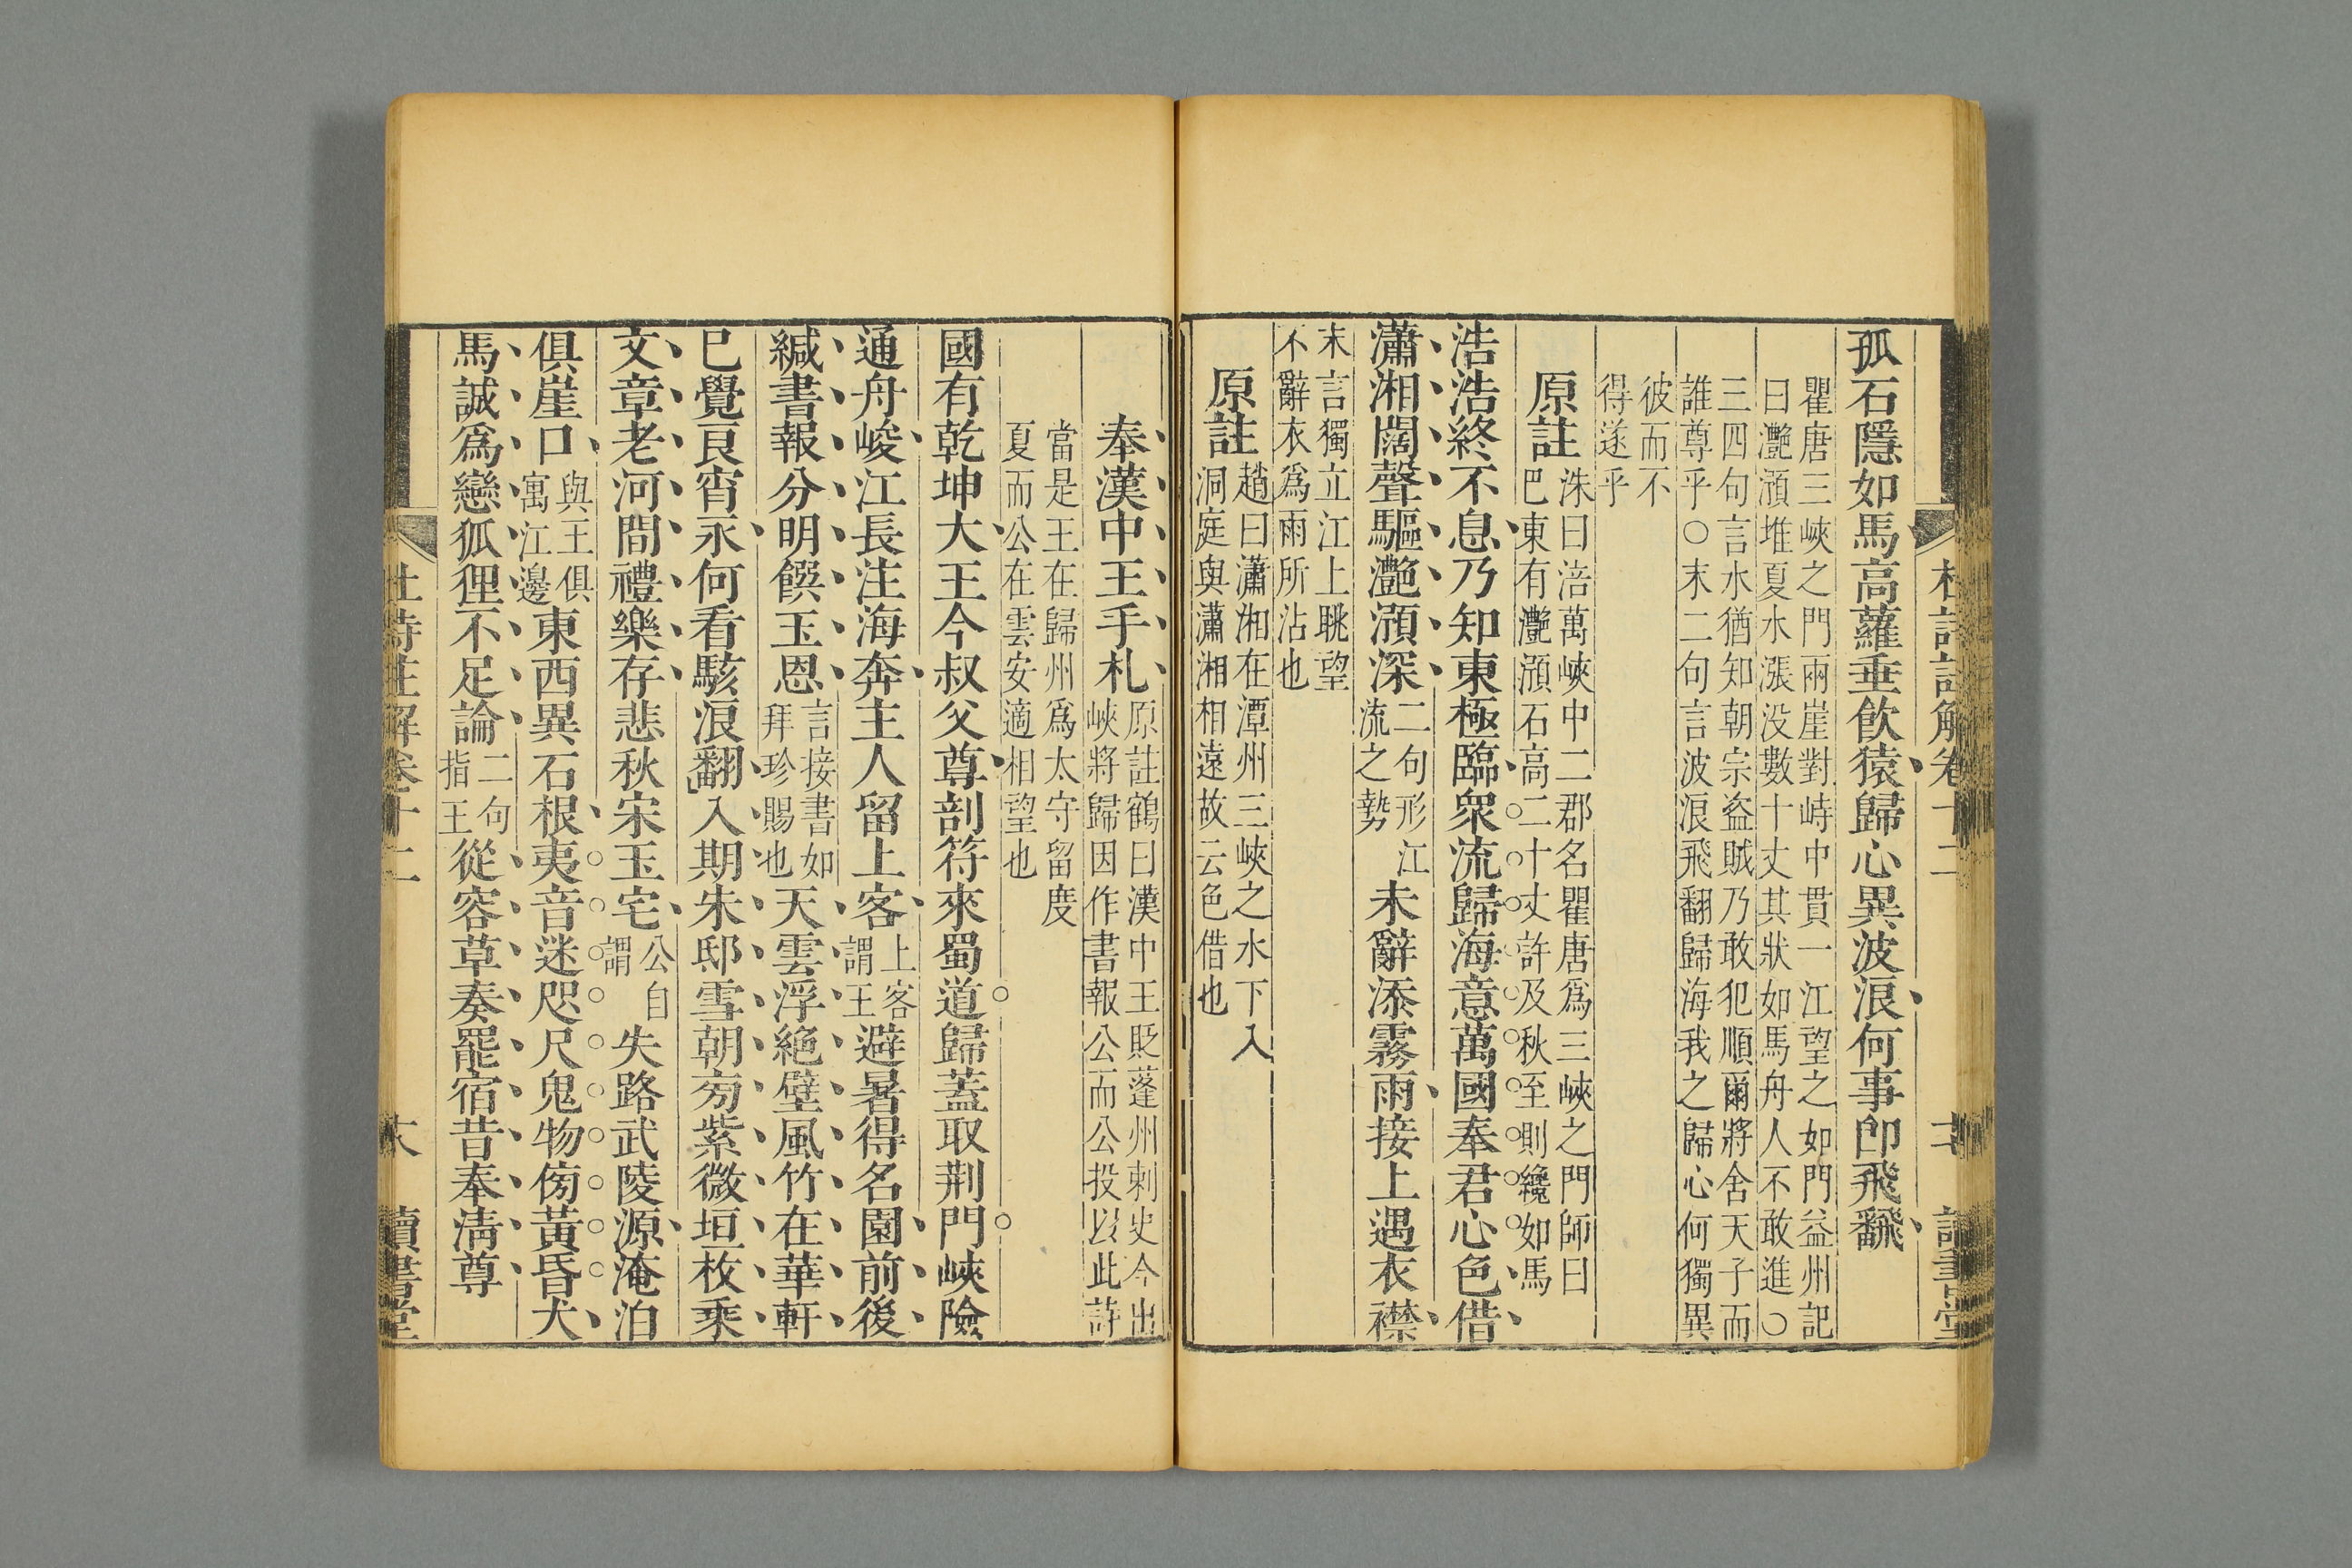 孤石隱如馬高蘿垂飲猿歸心異波浪何事即飛翻
瞿唐三峽之門兩崖對峙中貫一江望之如門益州記
曰灧澦堆夏水漲没數十丈其狀如馬舟人不敢進○
三四句言水猶知朝宗盜賊乃敢犯順爾將舍天子而
誰尊乎○末二句言波浪飛翻歸海我之歸心何獨異
彼而不
得遂乎
原註
洙曰涪萬峽中二郡名瞿唐爲三峽之門師曰
巴東有灧澦石高二十丈許及秋至則纔如馬
浩浩終不息乃知東極臨衆流歸海意萬國奉君心色借
瀟湘闊聲驅灧澦深
二句形江
流之勢
未辭添霧雨接上遇衣襟
末言獨立江上眺望
不辭衣爲雨所沾也
原註
趙曰瀟湘在潭州三峽之水下入
洞庭與瀟湘相遠故云色借也
奉漢中王手札
原註鶴曰漢中王貶蓬州刺史今出
峽將歸因作書報公而公投以此詩
當是王在歸州爲太守留度
夏而公在雲安適相望也
國有乾坤大王今叔父尊剖符來蜀道歸蓋取荆門峽險
通舟峻江長注海奔主人留上客
上客
謂王
避暑得名園前後
緘書報分明饌玉恩
言接書如
拜珍賜也
天雲浮絶壁風竹在華軒
已覺良宵永何看駭浪翻入期朱邸雪朝旁紫微垣枚乘
文章老河間禮樂存悲秋宋玉宅
公自
謂
失路武陵源淹泊
俱崖口
與王俱
寓江邊
東西異石根夷音迷咫尺鬼物傍黃昏犬
馬誠爲戀狐狸不足論
二句
指王
從容草奏罷宿昔奉清尊
杜詩註解卷十二
讀書堂